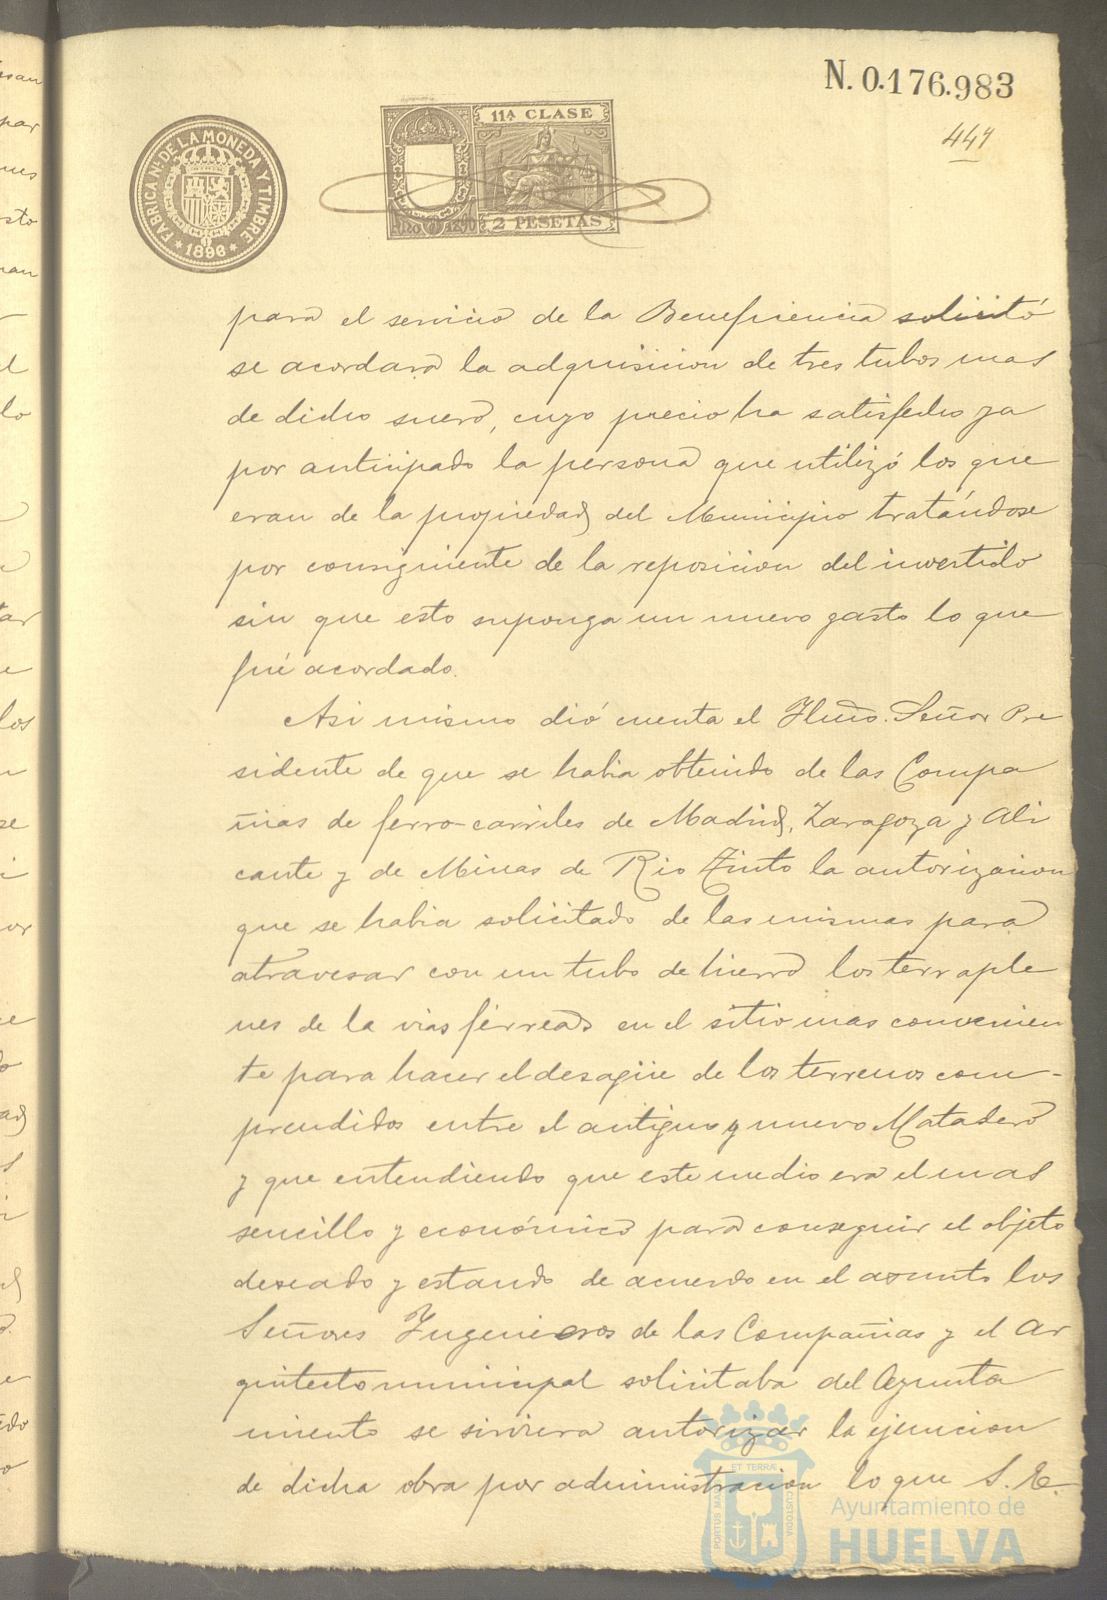 N. 0.176.983
447
FÁBRICA NL. DE LA MONEDA Y TIMBRE
1896
11ª CLASE
2 PESETAS
para el servicio de la Beneficencia solicitó
se acordara la adquisicion de tres tubos mas
de dicho suero, cuyo precio ha satisfecho ya
por anticipado la persona que utilizó los que
eran de la propiedad del Municipio tratándose
por consiguiente de la reposicion del invertido
sin que esto suponga un nuevo gasto lo que
fué acordado.
Asi mismo dió cuenta el Ilmo. Señor Pre
sidente de que se habia obtenido de las Compa
ñias de ferro-carriles de Madrid, Zaragoza y Ali
cante y de Minas de Rio Tinto la autorizacion
que se habia solicitado de las mismas para
atravesar con un tubo de hierro los terraple
nes de la vias férreas en el sitio mas convenien
te para hacer el desagüe de los terrenos com-
prendidos entre el antiguo y nuevo Matadero
y que entendiendo que este medio era el mas
sencillo y económico para conseguir el objeto
deseado y estando de acuerdo en el asunto los
Señores Ingenieros de las Compañias y el Ar
quitecto municipal solicitaba del Ayunta
miento se sirviera autorizar la ejecucion
de dicha obra por administracion lo que S. E.
PORTUS MARIS ET TERRÆ CUSTODIA
Ayuntamiento de
HUELVA